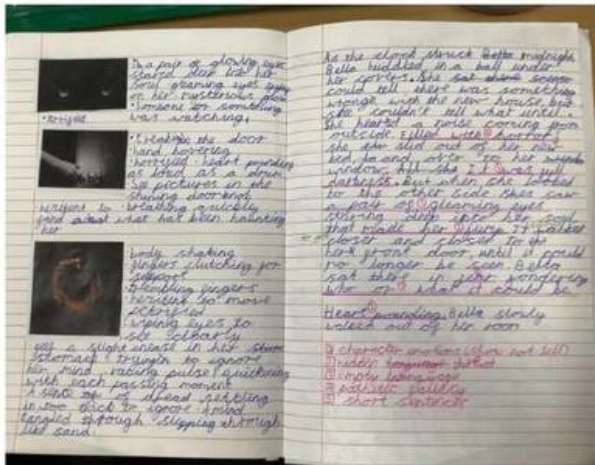 a pair of glowing eyes
stared deep into her
soul gleaming eyes
on her mysterious
Someone or something
was watching.
horrified
the door
hand hovering
horrified heart pounding
as loud as a drum
See pictures in the
shining doorknob
breathing quickly
to
find out what has been haunting
her
body shaking
fingers clutching for
support
trembling fingers
hesitate to move
petrified
wiping eyes to
see clearly
a slight unease in her
stomach trying to ignore
her mind, racing pulse quickening
with each passing moment
A sense of dread settling
in too thick to ignore mind
tangled through slipping through
like sand.
As the clock struck midnight,
Bella huddled in a ball under
her covers. She
could tell there was something
wrong with the new house, but
she couldn't tell what until..
She hearted a noise coming from
outside. Filled with horror,
she slid out of her new
bed, and over to her
window. All she was full
darkness, but when she looked
to the other side she saw
a pair of gleaming eyes
staring deep into her soul
that made her It walked
closer and closer to the
front door, until it could
no longer be seen. Bella
sat there in fear wondering
who or what it could be
Heart pounding, Bella slowly
walked out of her room
character emotions (show not tell)
hidden threat
empty
pathetic fallacy
short sentences